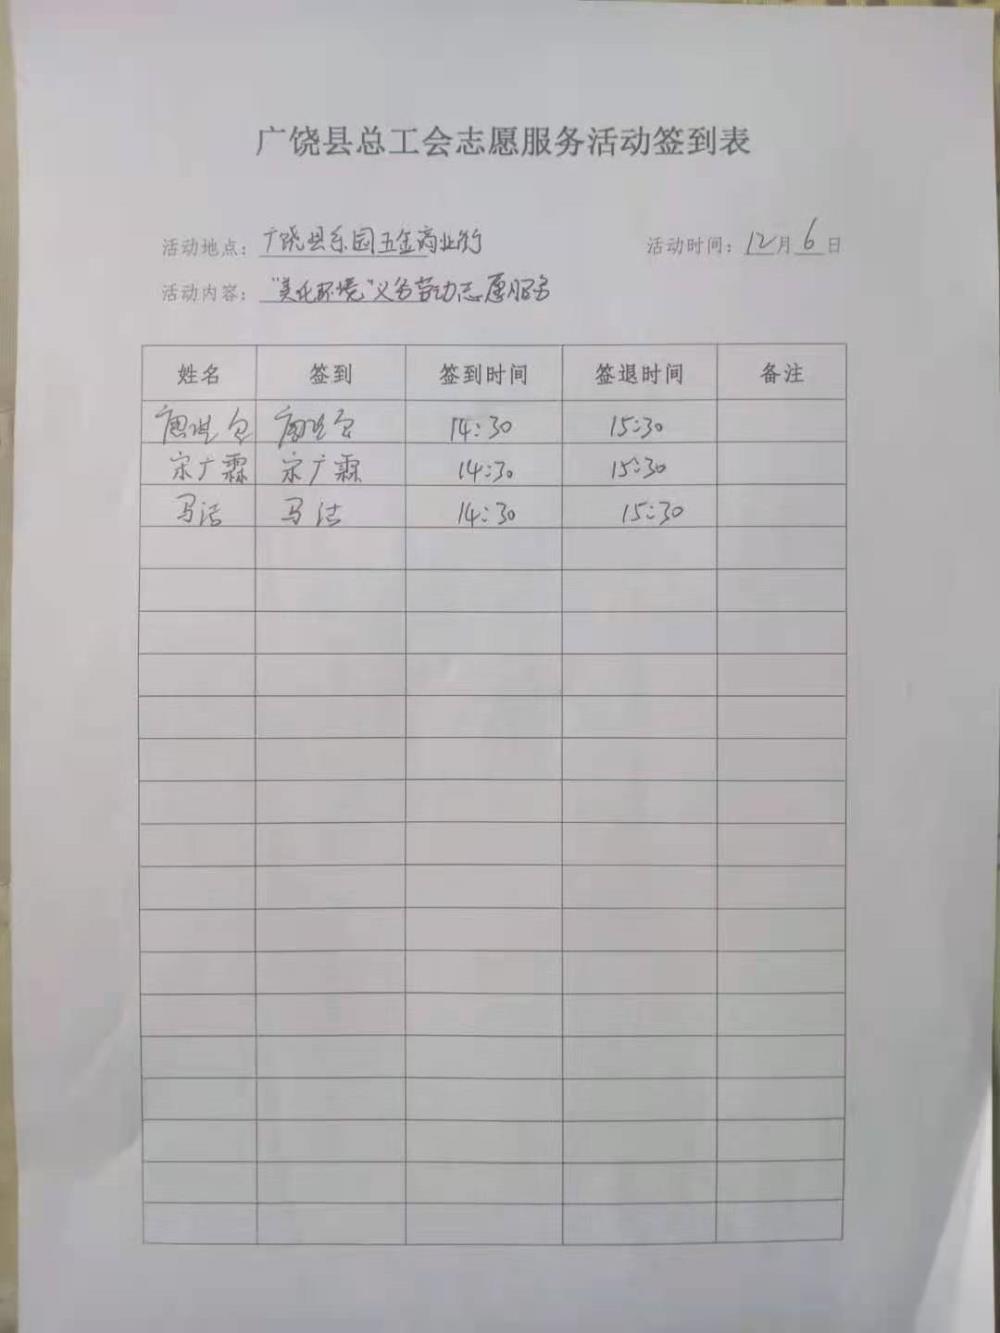 广饶县总工会志愿服务活动签到表
活动地点：广饶县乐园五金商业街 活动时间：12月6日
活动内容："美化环境"义务劳动志愿服务
姓名 签到 签到时间 签退时间 备注
14:30 15:30
宋广霖 宋广霖 14:30 15:30
马洁 马洁 14:30 15:30